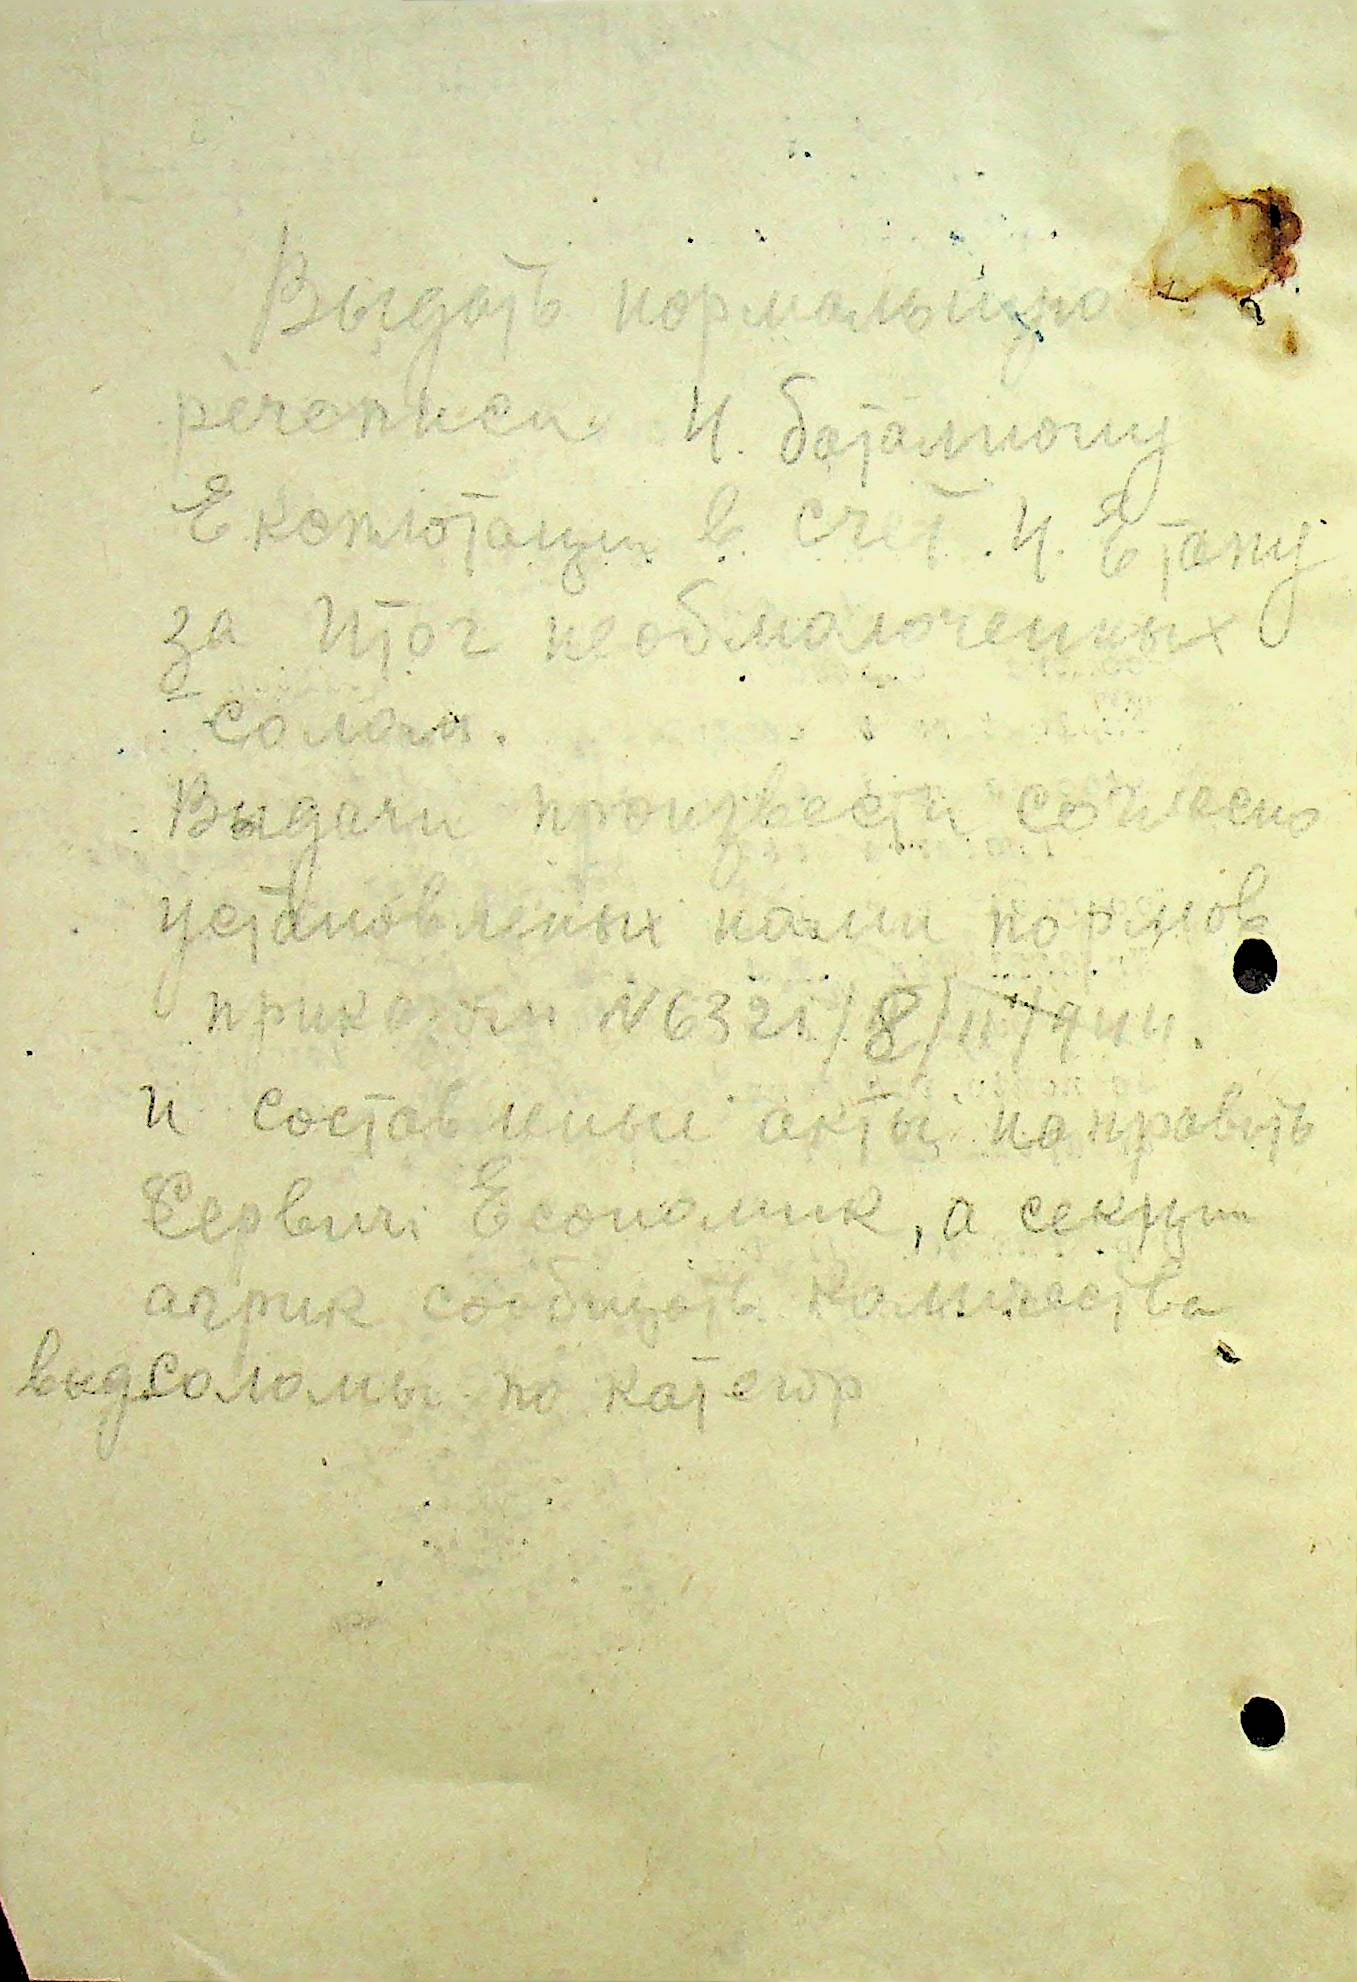 Выдать нормальную
речеписи И. баталиону
Експлотации в счет. И. Етапу
за Итог необмолоченных
соломи.
Выдачи произвести согласно
установленых нами нормов
приказам N 6321/8/II/944.
и составленые акты направить
Сервич Економик, а секции
агрик сообщить количества
выд. соломы по категор